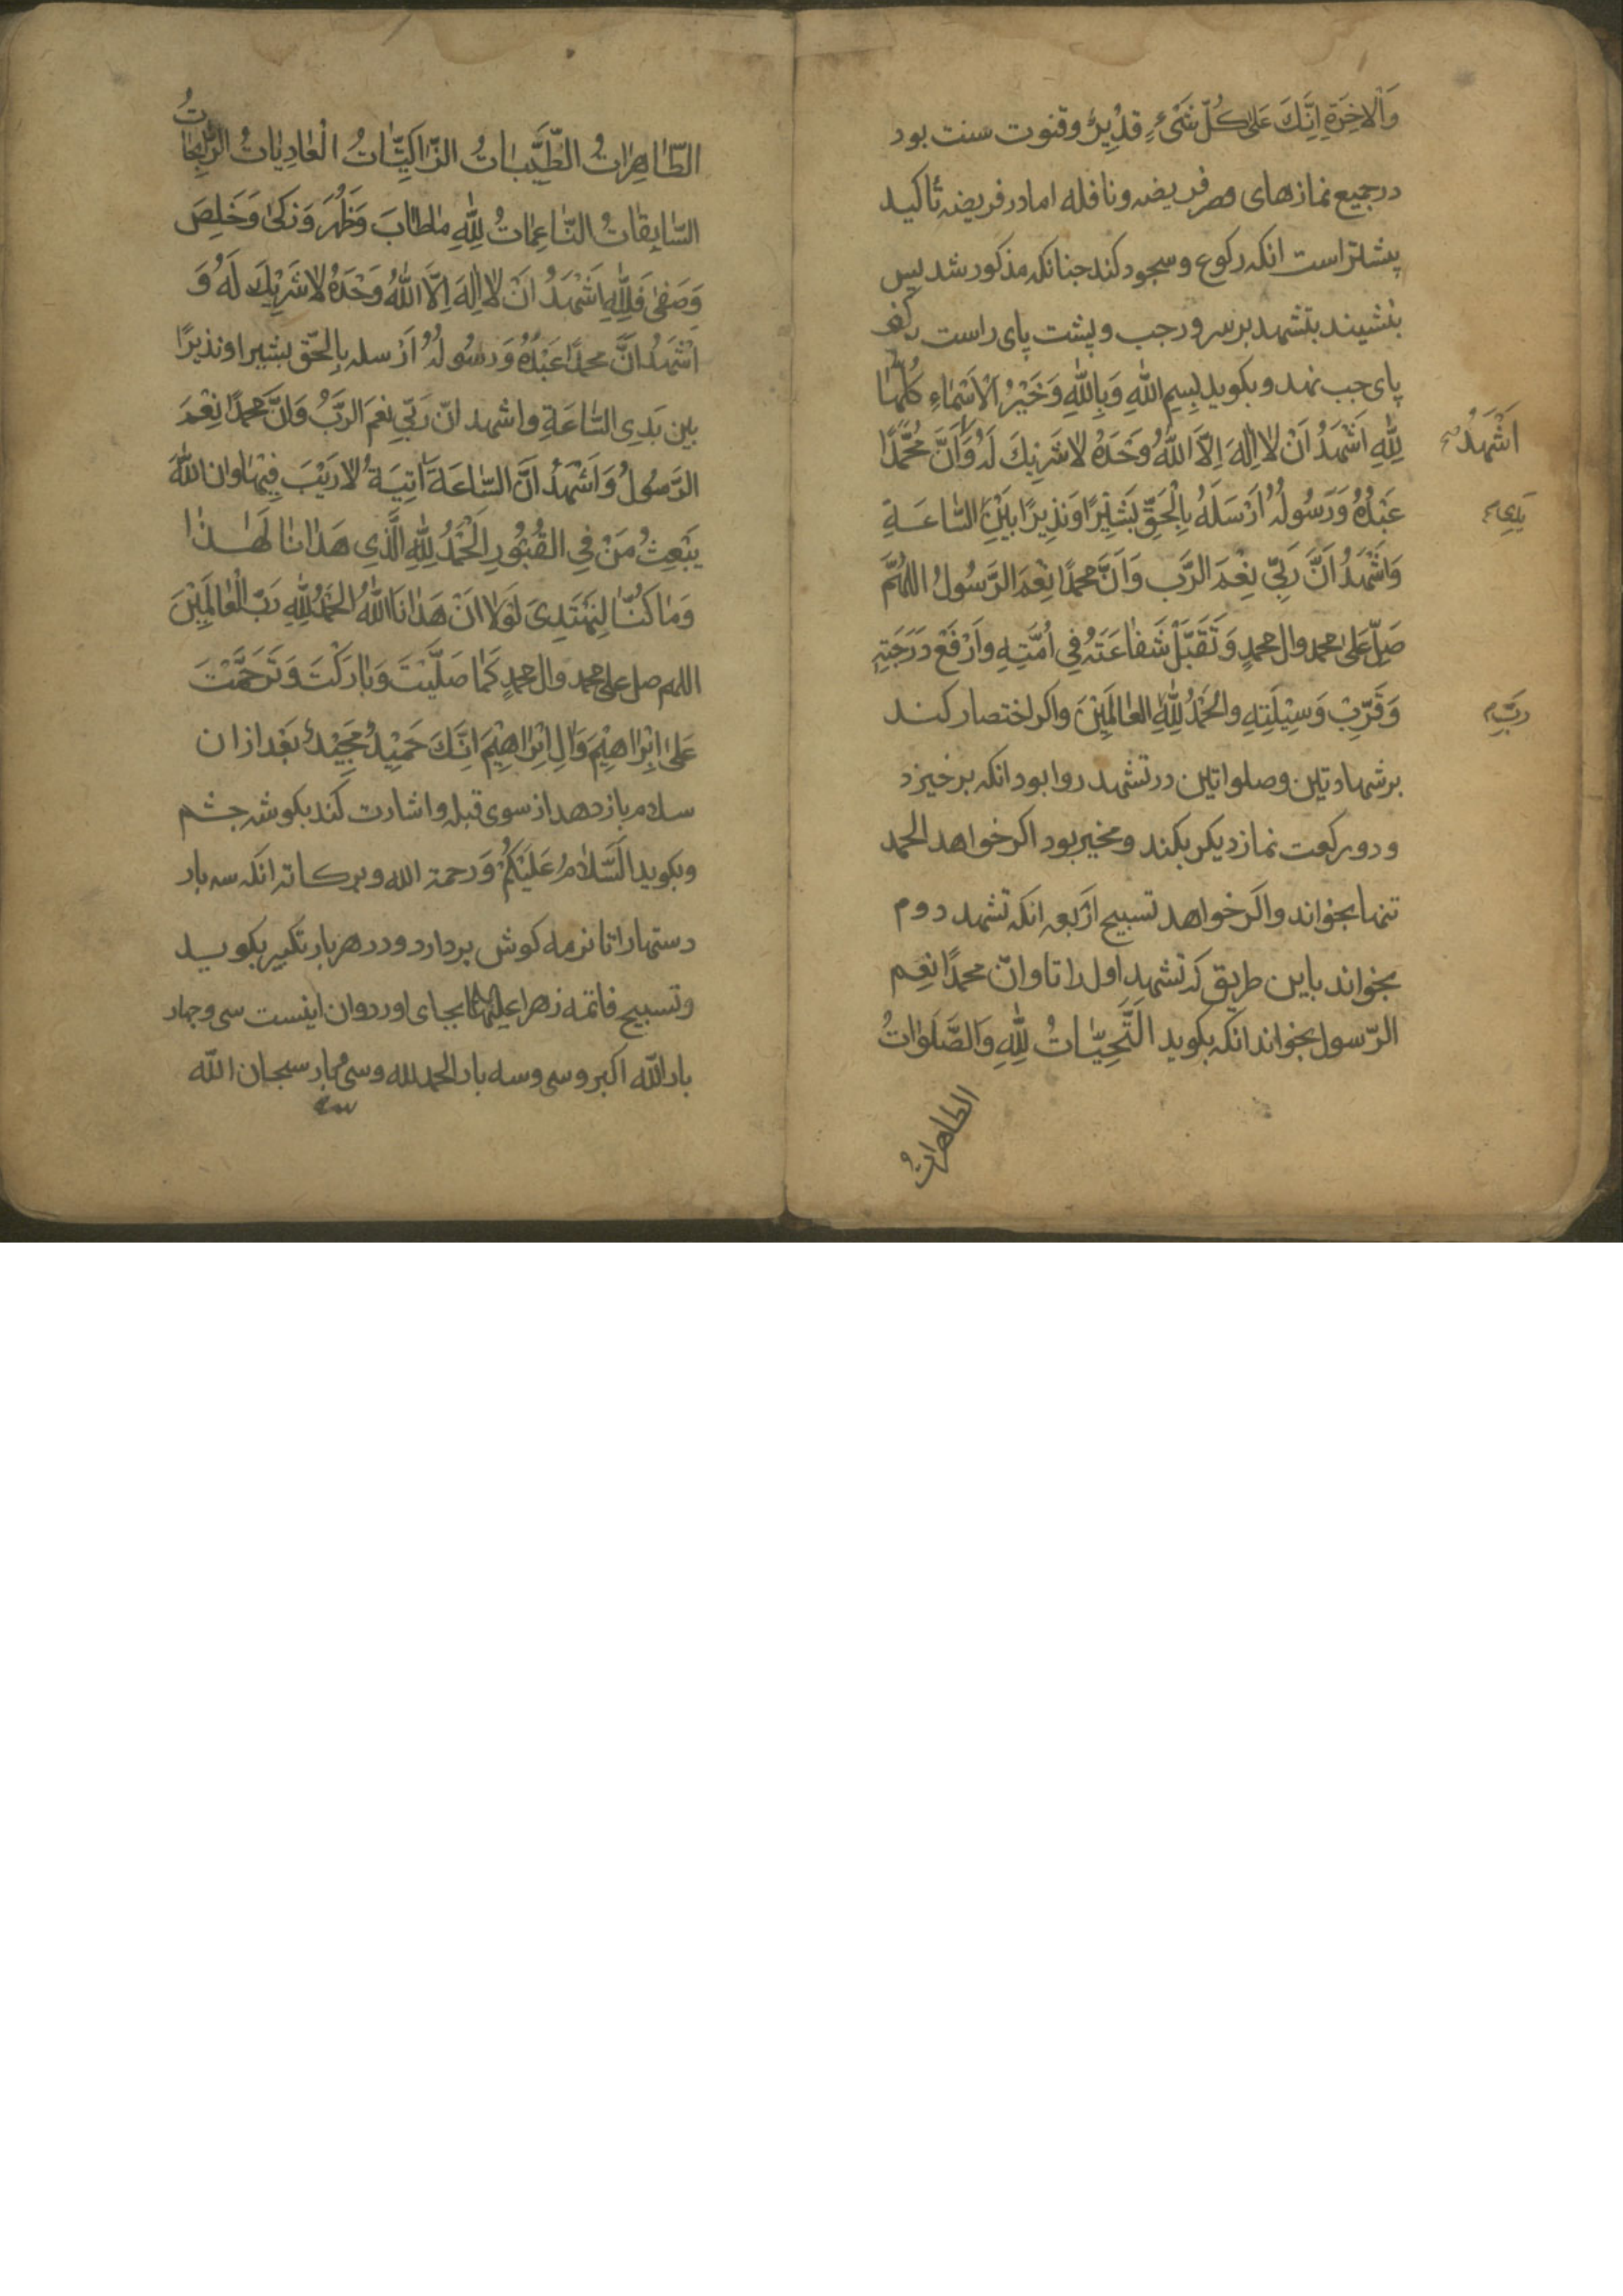 وَالاخِرَةِ اِنَّكَ عَلىٰ كُلِّ شَىْءٍ قَدِيْرٌ وقنوت سنت بود
درجميع نمازهاى هر فريضه ونافله اما در فريضه تأكيد
پيشتر است انكه ركوع وسجود كند جنانكه مذكور شد پس
بنشيند بتشهد برسرو رجب وپشت پاى راست بركف
پاى جب نهد وبكويد بِسِمِ اللّٰهِ وَبِاللّٰهِ وَخَيْرُ الْاَسْمٰاءِ كُلُّهٰا
لِلّٰهِ اَشْهَدُ اَنْ لا اِلٰهَ اِلاَّ اللّٰهُ وَحْدَهُ لا شَرِيكَ لَهُ وَاَنَّ مُحَمَّدًا
اَشْهَدُ
عَبْدُهُ وَرَسُولُهُ اَرْسَلَهُ بِالْحَقِّ بَشِيْرًا وَنَذِيرًا بَيْنَ السّٰاعَةِ
يَدَىِ
وَاَشْهَدُ اَنَّ رَبّى نِعْمَ الرَّب وَاَنَّ محمدًا نِعْمَ الرَّسُولُ اللهُمَّ
صَلِّ عَلىٰ محمد وال محمدٍ وَتَقَبَّلْ شَفٰاعَتَهُ فِى اُمَّتِهِ وارْفَعْ دَرَجَتِهِ
وَقَرِّبْ وَسِيْلَتِهِ والحَمْدُ لِلّٰهِ العٰالَمِيْنَ واكر اختصار كند
ربِّ
برشهادتين وصلواتين درتشهد روا بود انكه برخيزد
ودو ركعت نماز ديكر بكند ومخير بود اكر خواهد الحمد
تنها بخواند واكر خواهد تسبيح اربعه انكه تشهد دوم
بخواند باين طريق كه تشهد اول را تا وانّ محمدًا نعِم
الرّسول بخواند انكه بكويد اَلتَّحِيّٰاتُ لِلّٰهِ وَالصَّلَوٰاتُ
الطاهراتُ
الطّٰاهِرٰاتُ الطَّيِّبٰاتُ الزّٰاكِيّٰاتُ الْغٰادِيٰاتُ الرّٰيِحٰاتُ
السّٰابِقٰاتُ النّٰاعِمٰاتُ لِلّٰهِ مٰا طٰابَ وَطَهُرَ وَزَكىٰ وَخَلِصَ
وَصَفىٰ فَلِلّٰهِ اَشْهَدُ اَنْ لا اِلٰهَ اِلاَّ اللّٰهُ وَحْدَهُ لا شَرِيْكَ لَهُ وَ
اَشْهَدُ اَنَّ محمدًا عَبْدُهُ وَرَسُولُهُ اَرْسله بِالحَقّ بشيرا ونذيرًا
بين يَدَىِ السّٰاعَةِ واشهد انّ رَبّى نِعْمَ الرَّبُّ وَاَنَّ محمدًا نِعْمَ
الرَّسُولُ وَاَشْهَدُ اَنَّ السّٰاعَةَ اٰتِيَةٌ لا رَيْبَ فِيْهٰا وان اللّٰهَ
يَبْعِثُ مَنْ فِى القُبُورِ اَلْحَمْدُ لِلّٰهِ الَّذِى هَدٰانٰا لِهٰذٰا
وَمٰا كُنّٰا لِنَهْتَدِىَ لَوْلٰا اَنْ هَدٰانَا اللّٰهُ الحَمْدُ لِلّٰهِ رَبِّ الْعٰالَمِيْنَ
اللهم صل على محمد وال محمدٍ كَمٰا صَلَّيْتَ وَبٰارَكْتَ وَتَرَحَّمْتَ
عَلىٰ اِبْرٰاهِيْمَ وَاٰلِ اِبْرٰاهِيْمَ اِنَّكَ حَمِيْدٌ مَجِيْدٌ بَعْد ازان
سلام باز دهد از سوى قبله واشارت كند بكوشه جشم
وبكويد اَلسَّلٰامُ عَلَيْكُمْ وَرحمة الله وبركاته انكه سه بار
دستها را تا نرمه كوش بردارد ودر هر بار تكبير بكويد
وتسبيح فاتمه زهرا عليها بجاى اورد وان اينست سى وجهار
بار اللّٰه اكبر وسى وسه بار الحمد لله وسى بار سبحان اللّٰه
سه